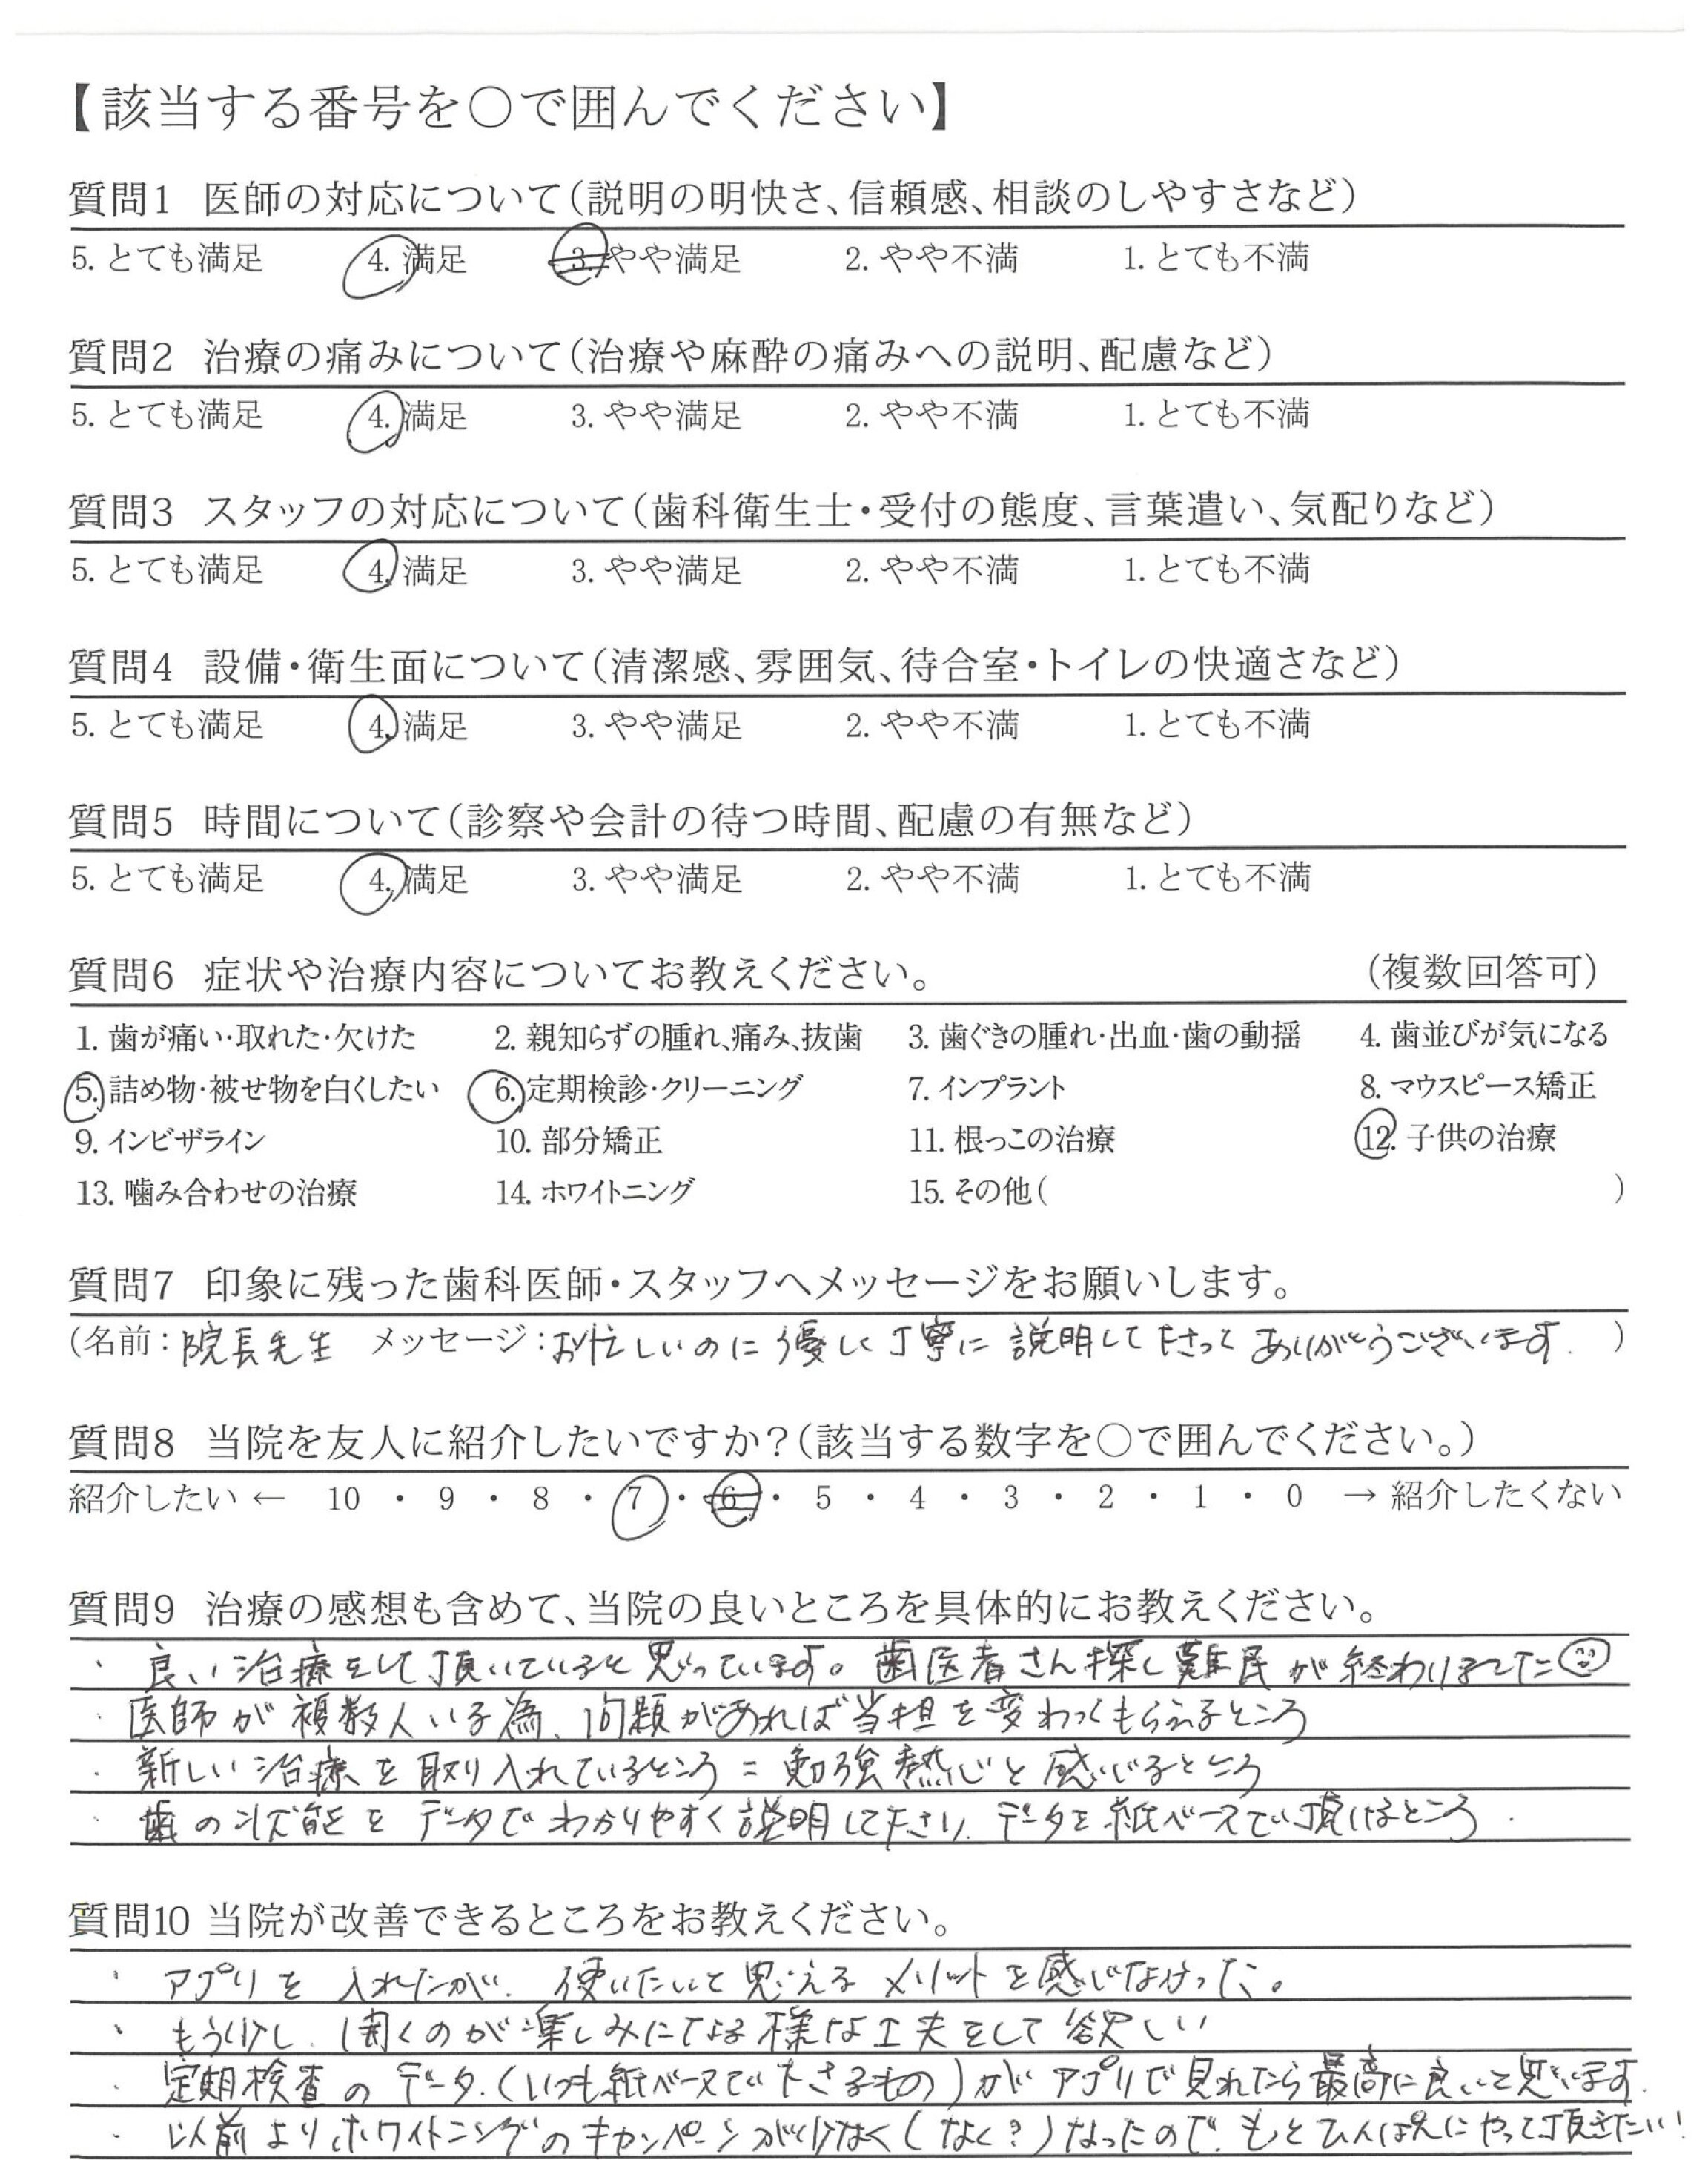 【該当する番号を○で囲んでください】
質問1 医師の対応について(説明の明快さ、信頼感、相談のしやすさなど)
5. とても満足 4. 満足 3. やや満足 2. やや不満 1. とても不満
質問2 治療の痛みについて(治療や麻酔の痛みへの説明、配慮など)
5. とても満足 4. 満足 3. やや満足 2. やや不満 1. とても不満
質問3 スタッフの対応について(歯科衛生士・受付の態度、言葉遣い、気配りなど)
5. とても満足 4. 満足 3. やや満足 2. やや不満 1. とても不満
質問4 設備・衛生面について(清潔感、雰囲気、待合室・トイレの快適さなど)
5. とても満足 4. 満足 3. やや満足 2. やや不満 1. とても不満
質問5 時間について(診察や会計の待つ時間、配慮の有無など)
5. とても満足 4. 満足 3. やや満足 2. やや不満 1. とても不満
質問6 症状や治療内容についてお教えください。 (複数回答可)
1. 歯が痛い・取れた・欠けた 2. 親知らずの腫れ、痛み、抜歯 3. 歯ぐきの腫れ・出血・歯の動揺 4. 歯並びが気になる
5. 詰め物・被せ物を白くしたい 6. 定期検診・クリーニング 7. インプラント 8. マウスピース矯正
9. インビザライン 10. 部分矯正 11. 根っこの治療 12. 子供の治療
13. 噛み合わせの治療 14. ホワイトニング 15. その他( )
質問7 印象に残った歯科医師・スタッフへメッセージをお願いします。
(名前:院長先生 メッセージ:お忙しいのに優しく丁寧に説明して下さってありがとうございます. )
質問8 当院を友人に紹介したいですか?(該当する数字を○で囲んでください。)
紹介したい ← 10 ・ 9 ・ 8 ・ 7 ・ 6 ・ 5 ・ 4 ・ 3 ・ 2 ・ 1 ・ 0 → 紹介したくない
質問9 治療の感想も含めて、当院の良いところを具体的にお教えください。
・ 良い治療をして頂いていると思っています。歯医者さん探し難民が終わりました
・ 医師が複数人いる為、問題があれば当担を変わってもらえるところ
・ 新しい治療を取り入れているところ = 勉強熱心と感じるところ
・ 歯の状態をデータでわかりやすく説明して下さり、データを紙ベースで頂けるところ.
質問10 当院が改善できるところをお教えください。
・ アプリを入れたが、使いたいと思えるメリットを感じなかった。
・ もう少し、開くのが楽しみになる様な工夫をして欲しい
・ 定期検査のデータ.(いつも紙ベースで下さるもの)がアプリで見れたら最高に良いと思います.
・ 以前よりホワイトニングのキャンペーンが少なく(なく?)なったので、もっとひんぱんにやって頂きたい!